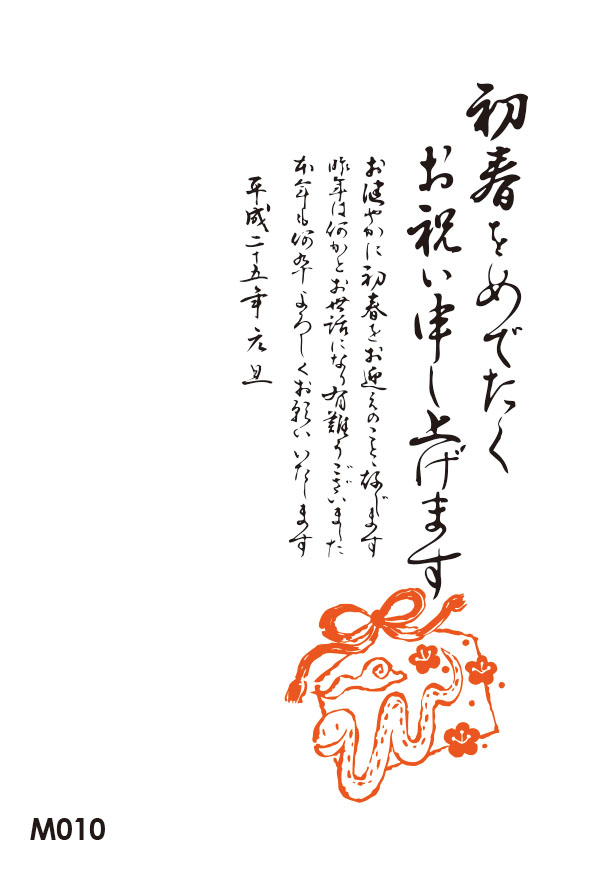 初春をめでたく
お祝い申し上げます
お健やかに初春をお迎えのことと存じます
昨年は何かとお世話になり有難うございました
本年も何卒よろしくお願いいたします
平成二十五年 元旦
M010